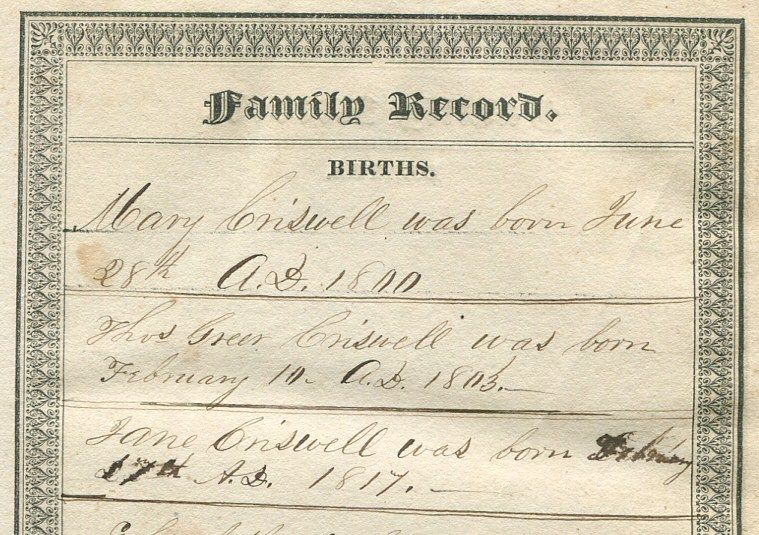 Family Record.
BIRTHS.
Mary Criswell was born June
28th A.D. 1800
Thos Greer Criswell was born
February 10 - A.D. 1803. -
Jane Criswell was born February
17th A.D. 1817. -